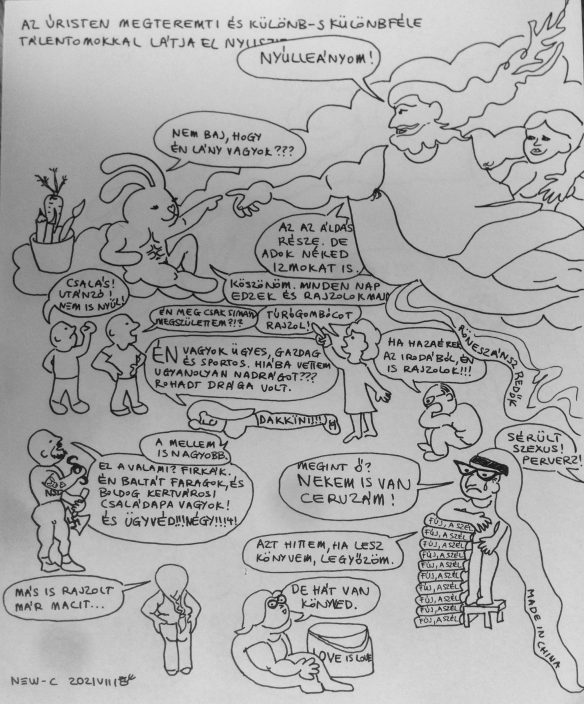 AZ ÚRISTEN MEGTEREMTI ÉS KÜLÖNB-S KÜLÖNBFÉLE
TÁLENTOMOKKAL LÁTJA EL
NYÚLLEÁNYOM!
NEM BAJ, HOGY
ÉN LÁNY VAGYOK???
AZ AZ ÁLDÁS
RÉSZE. DE
ADOK NÉKED
IZMOKAT IS.
KÖSZÖNÖM. MINDEN NAP
EDZEK ÉS RAJZOLOK MAJD
CSALÁS!
UTÁNZÓ!
NEM IS NYÚL!
ÉN MEG CSAK SIMÁN
MEGSZÜLETTEM?!?
TÚRÓGOMBÓCOT
RAJZOL!
RÖNESZÁNSZ REDŐK
ÉN VAGYOK ÜGYES, GAZDAG
ÉS SPORTOS. HIÁBA VETTEM
UGYANOLYAN NADRÁGOT???
ROHADT DRÁGA VOLT.
HA HAZAÉREK
AZ IRODÁBÓL, ÉN
IS RAJZOLOK!!!
DAKKINI!!!
A MELLEM
IS NAGYOBB.
EZ A VALAMI? FIRKÁK.
ÉN BALTÁT FARAGOK, ÉS
BOLDOG KERTVÁROSI
CSALÁDAPA VAGYOK!
ÉS ÜGYVÉD!!!NÉGY!!!4!
SÉRÜLT
SZEXUS!
PERVERZ!
MEGINT Ő?
NEKEM IS VAN
CERUZÁM!
AZT HITTEM, HA LESZ
KÖNYVEM, LEGYŐZÖM.
FÚJ, A SZÉL
FÚJ, A SZÉL
FÚJ, A SZÉL
FÚJ, A SZÉL
FÚJ, A SZÉL
FÚJ, A SZÉL
FÚJ, A SZÉL
FÚJ, A SZÉL
MADE IN CHINA
MÁS IS RAJZOLT
MÁR MACIT...
DE HÁT VAN
KÖNYVED.
LOVE IS LOVE
NEW-C 2021VIII